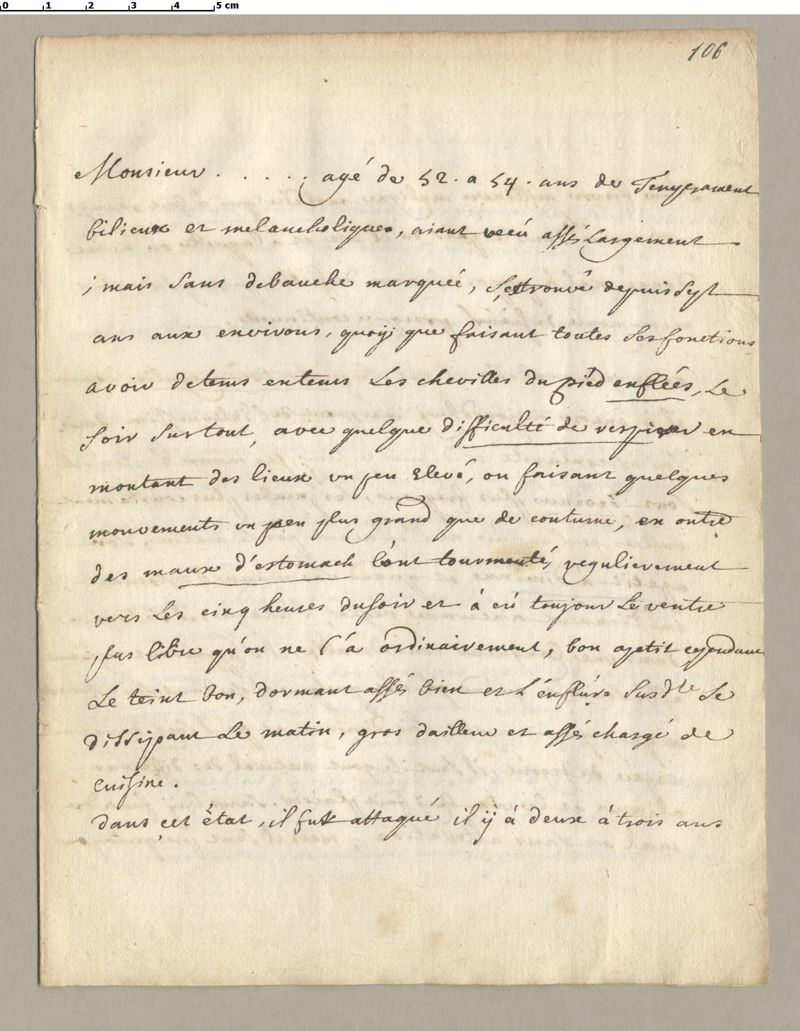 0 1 2 3 4 5 cm
106
Monsieur . . . . . agé de 52. a 54. ans de Temperament
bilieux et melancholique, aiant vecu assés Largement
; mais sans debauche marquée, se trouve depuis sept
ans aux environs, quoÿ que faisant toutes ses fonctions
avoir detems entems Les chevilles du piéd enflées, Le
soir surtout, avec quelque difficulté de respirer en
montant des lieux un peu elevé, ou faisant quelques
mouvements un peu plus grand que de coutume, en outre
des maux d'estomach l'ont tourmenté, regulierement
vers Les cinq heures du soir et à eü toujour Le ventre
plus libre qu'on ne l'á ordinairement, bon apetit cependant
Le teint bon, dormant assés bien et L'enflure susdte se
dissipant Le matin, gros dailleur et assés chargé de
cuisine.
dans cet état, il fut attaqué il ÿ à deux à trois ans